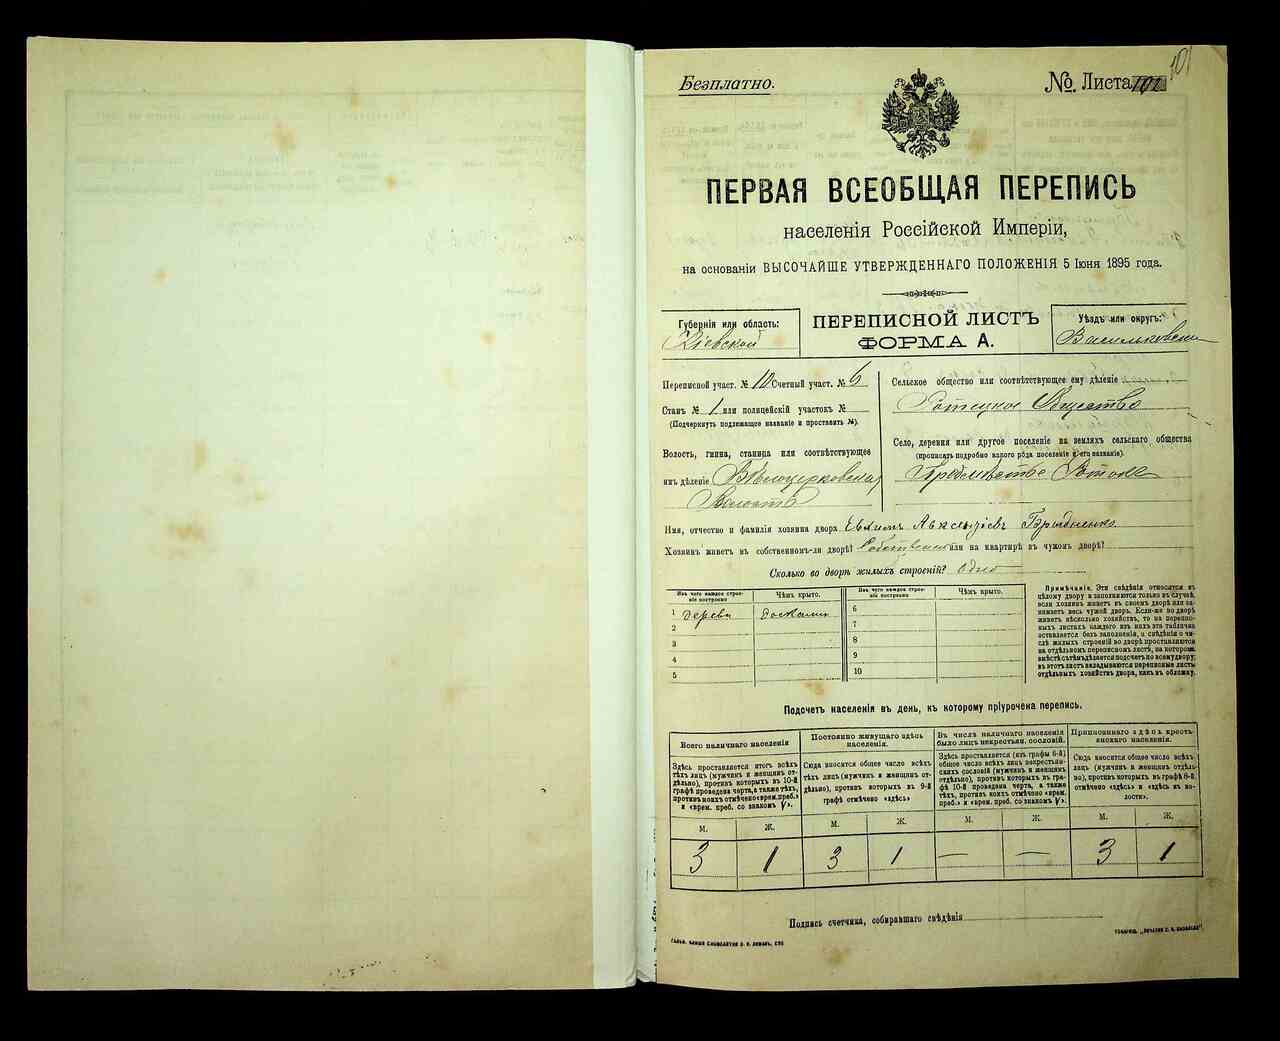 101
Безплатно.
№. Листа 101
ПЕРВАЯ ВСЕОБЩАЯ ПЕРЕПИСЬ
населенія Россійской Имперіи,
на основаніи ВЫСОЧАЙШЕ УТВЕРЖДЕННАГО ПОЛОЖЕНІЯ 5 Іюня 1895 года.
Губернія или область:
Кіевской
ПЕРЕПИСНОЙ ЛИСТЪ
ФОРМА А.
Уѣздъ или округъ:
Васильковскій
Переписной участ. № 10 Счетный участ. № 6
Станъ № 1 или полицейскій участокъ №
(Подчеркнуть подлежащее названіе и проставить №).
Волость, гмина, станица или соотвѣтствующее
имъ дѣленіе Бѣлоцерковская
Волость
Сельское общество или соотвѣтствующее ему дѣленіе
Ротецкое Общество
Село, деревня или другое поселеніе на земляхъ сельскаго общества
(прописать подробно какого рода поселеніе и его названіе).
Предмѣстье
Имя, отчество и фамилія хозяина двора
Хозяинъ живетъ въ собственномъ-ли дворѣ? или на квартирѣ въ чужомъ дворѣ?
Сколько во дворѣ жилыхъ строеній? Одно
Изъ чего каждое строеніе построено
Чѣмъ крыто.
Изъ чего каждое строеніе построено
Чѣмъ крыто.
1 дерева досками
2
3
4
5
6
7
8
9
10
Примѣчаніе. Эти свѣдѣнія относятся къ
цѣлому двору и заполняются только въ случаѣ,
если хозяинъ живетъ въ своемъ дворѣ или за-
нимаетъ весь чужой дворъ. Если-же во дворѣ
живетъ нѣсколько хозяйствъ, то на перепис-
ныхъ листахъ каждаго изъ нихъ эта табличка
оставляется безъ заполненія, а свѣдѣнія о чи-
слѣ жилыхъ строеній во дворѣ проставляются
на отдѣльномъ переписномъ листѣ, на которомъ
вмѣстѣ съ тѣмъ дѣлается подсчетъ по всему двору;
въ этотъ листъ вкладываются переписные листы
отдѣльныхъ хозяйствъ двора, какъ въ обложку.
Подсчетъ населенія въ день, къ которому пріурочена перепись.
Всего наличнаго населенія
Здѣсь проставляется итогъ всѣхъ
тѣхъ лицъ (мужчинъ и женщинъ от-
дѣльно), противъ которыхъ въ 10-й
графѣ проведена черта, а также тѣхъ,
противъ коихъ отмѣчено «врем. преб.»
и «врем. преб. со знакомъ V».
Постоянно живущаго здѣсь
населенія.
Сюда вносится общее число всѣхъ
тѣхъ лицъ (мужчинъ и женщинъ от-
дѣльно), противъ которыхъ въ 9-й
графѣ отмѣчено «здѣсь»
Въ числѣ наличнаго населенія
было лицъ некрестьян. сословій.
Здѣсь проставляется (изъ графы 6-й)
общее число всѣхъ лицъ некрестьян-
скихъ сословій (мужчинъ и женщинъ
отдѣльно), противъ которыхъ въ гра-
фѣ 10-й проведена черта, а также
тѣхъ, противъ коихъ отмѣчено «врем.
преб.» и «врем. преб. со знакомъ V».
Приписаннаго здѣсь кресть-
янскаго населенія.
Сюда вносится общее число всѣхъ
лицъ (мужчинъ и женщинъ отдѣль-
но), противъ которыхъ въ графѣ 8-й
отмѣчено «здѣсь» и «здѣсь въ во-
лости».
М. Ж. М. Ж. М. Ж. М. Ж.
3 1 3 1 — — 3 1
Подпись счетчика, собиравшаго свѣдѣнія